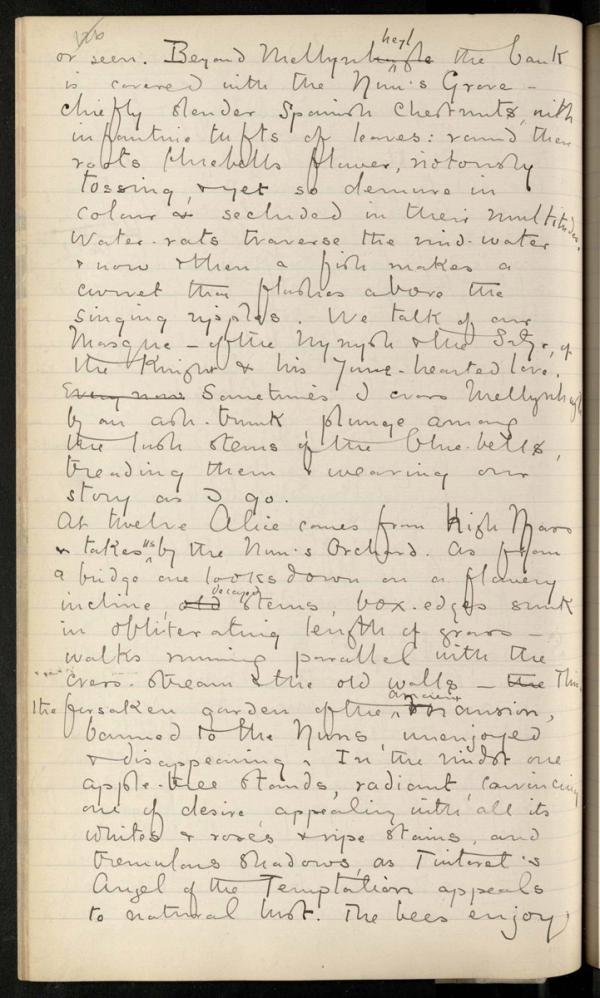 or seen. Beyond Mellynhugle heyl the bank
is covered with the Nun's Grove –
chiefly slender Spanish Chestnuts, with
infantine tufts of leaves: round their
roots bluebells flower, riotously
tossing, & yet so demure in
colour & secluded in their multitudes.
Water-rats traverse the mid-water
& now & then a fish makes a
curvet that flashes above the
singing ripples. We talk of our
Masque – of the Nymph & the Satyr, of
the Knight & his June-hearted love.
Every now Sometimes I cross Mellynheyl
by an ash-trunk, plunge among
the lush stems of the blue-bells,
treading them & weaving our
story as I go.
At twelve Alice comes from High
& takes us by the Nun's Orchard. As from
a bridge one looks down on a flowery
incline, old decayed stems, box-edges sunk
in obliterating length of grass –
walks running parallel with the
cross-stream & the old walls – the This
the forsaken garden of the ancient Mansion,
banned to the Nuns, unenjoyed
& disappearing. In the midst one
apple-tree stands, radiant, convincing
one of desire, appealing with all its
whites & roses & ripe stains, and
tremulous shadows, as Tintoret's
Angel of the Temptation appeals
to natural lust. The bees enjoy